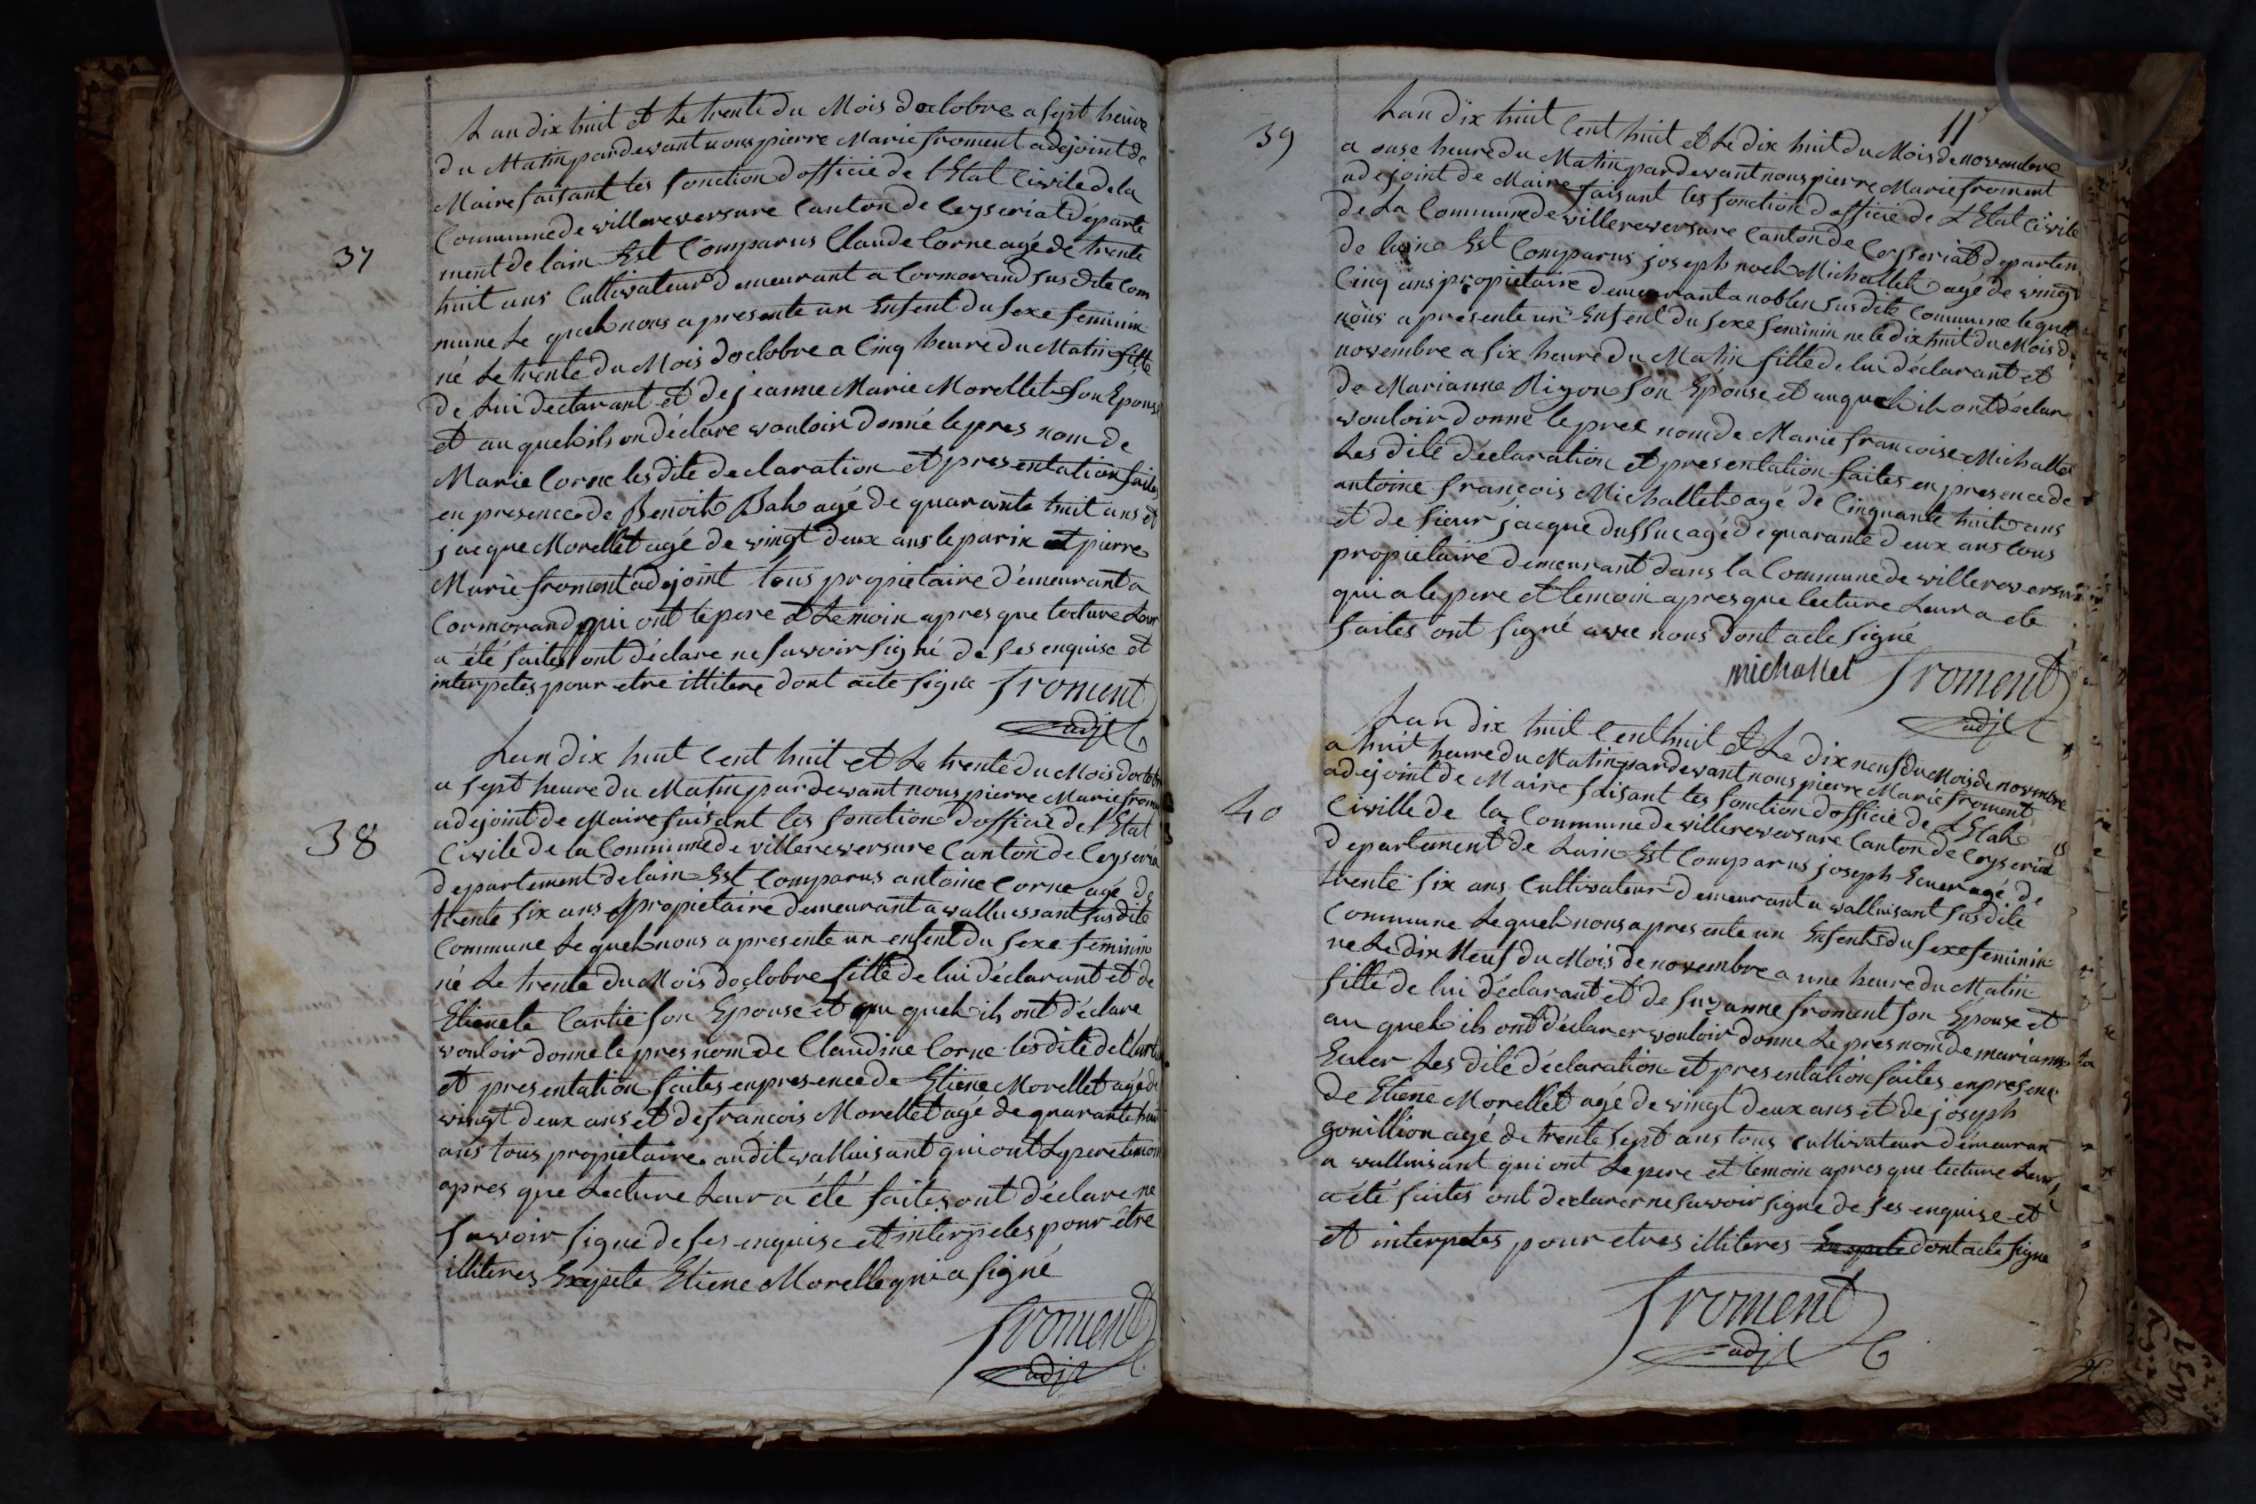 37
Lan dix huit et Le trente du Mois doctobre a sept heure
du Matin pardevant nous pierre Marie froment adejoint de
Maire faisant les fonction dofficie de l'Etat Civile de la
Commune de villereversure Canton de Ceyseriat départe
ment de lain Est Comparus Claude Corne agé de trente
huit ans Cultivateur demeurant a Cormorand susdite Com
mune Le quel nous a presente un Enfent du sexe feminin
né Le trente du Mois doctobre a Cinq heure du Matin fille
de Lui declarant et de jeanne Marie Morellet son Epouse
et au quel ils on déclare vouloir donné le pres nom de
Marie Corne les dite declaration et presentation faites
en presence de Benoit Bah agé de quarante huit ans et
jacque Morellet agé de vingt deux ans le parin et pierre
Marie froment adejoint tous propietaire démeurant a
Cormorand qui ont le pere et temoin apres que lecture Leur
a été faites ont déclare ne savoir signé de ses enquise et
interpetes pour etre illitere dont acte signe froment
adjt
38
Lan dix huit Cent huit et Le trente du Mois doctobre
a sept heure du Matin pardevant nous pierre Marie froment
adejoint de Maire faisant les fonction dofficie de l'Etat
Civile de la Commune de villereversure Canton de Ceyseria
departement de lain Est Comparus antoine Corne agé de
trente six ans propietaire demeurant a valluissant susdite
Commune Le quel nous a presente un enfent du sexe feminin
né Le trente du Mois doctobre fille de lui déclarant et de
Etienete Cartie son Epouse et au quel ils ont déclare
vouloir donne le pres nom de Claudine Corne les dite declara
et presentation faites en presence de Etiene Morellet agé de
vingt deux ans et de francois Morellet agé de quarante huit
ans tous propietaire audit valluisant qui ont Le pere temoin
apres que Lecture Leur a été faites ont déclare ne
savoir signé de ses enquise et interpeles pour être
illiteres Exepte Etiene Morelle qui a signé
froment
adjt
11
39
Lan dix huit Cent huit et Le dix huit du Mois de novembre
a onse heure du Matin pardevant nous pierre Marie froment
adejoint de Maire faisant les fonction dofficie de L'Etat Civile
de La Commune de villereversure Canton de Ceyseriat departem
de laine Est Comparus joseph noel Michallet agé de vingt
Cinq ans propietaire demeurant a noblen susdite Commune le quel
nous a presente un Enfent du sexe feminin ne le dix huit du Mois d
novembre a six heure du Matin fille de lui déclarant et
de Marianne Rigon son Epouse et au quel ils ont déclar
vouloir donne le pres nom de Marie francoise Michallet
Les dite déclaration et presentation faites en presence de
antoine françois Michallet agé de Cinquante huit ans
et de sieur jacque dussuc agé de quarante deux ans tous
propietaire demeurant dans la Commune de villereversure
qui a le pere et temoin apres que lecture Leur a ete
faites ont signé avec nous dont acte signé
michallet froment
adjt
40
Lan dix huit Cent huit et Le dix neuf du Mois de novembre
a huit heure du Matin pardevant nous pierre Marie froment
adejoint de Maire faisant les fonction dofficie de L'Etat
Civille de la Commune de villereversure Canton de Ceyseriat
departement de Lain Est Comparus joseph Ecuer agé de
trente six ans Cultivateur demeurant a valluisant susdite
Commune Le quel nous a presente un Enfent du sexe feminin
ne Le dix Neuf du Mois de novembre a une heure du Matin
fille de lui déclarant et de suzanne froment son Epouse et
au quel ils ont déclarer vouloir donne Le pres nom de marianne
Ecuer Les dite déclaration et presentation faites en presence
de Etiene Morellet agé de vingt deux ans et de joseph
gouillion agé de trente sept ans tous cultivateur démeuran
a valluisant qui ont Le pere et temoin apres que lecture Leur
a été faites ont declarer ne savoir signe de ses enquise et
et interpetes pour etres illiteres Exepte dont acte signe
froment
adjt